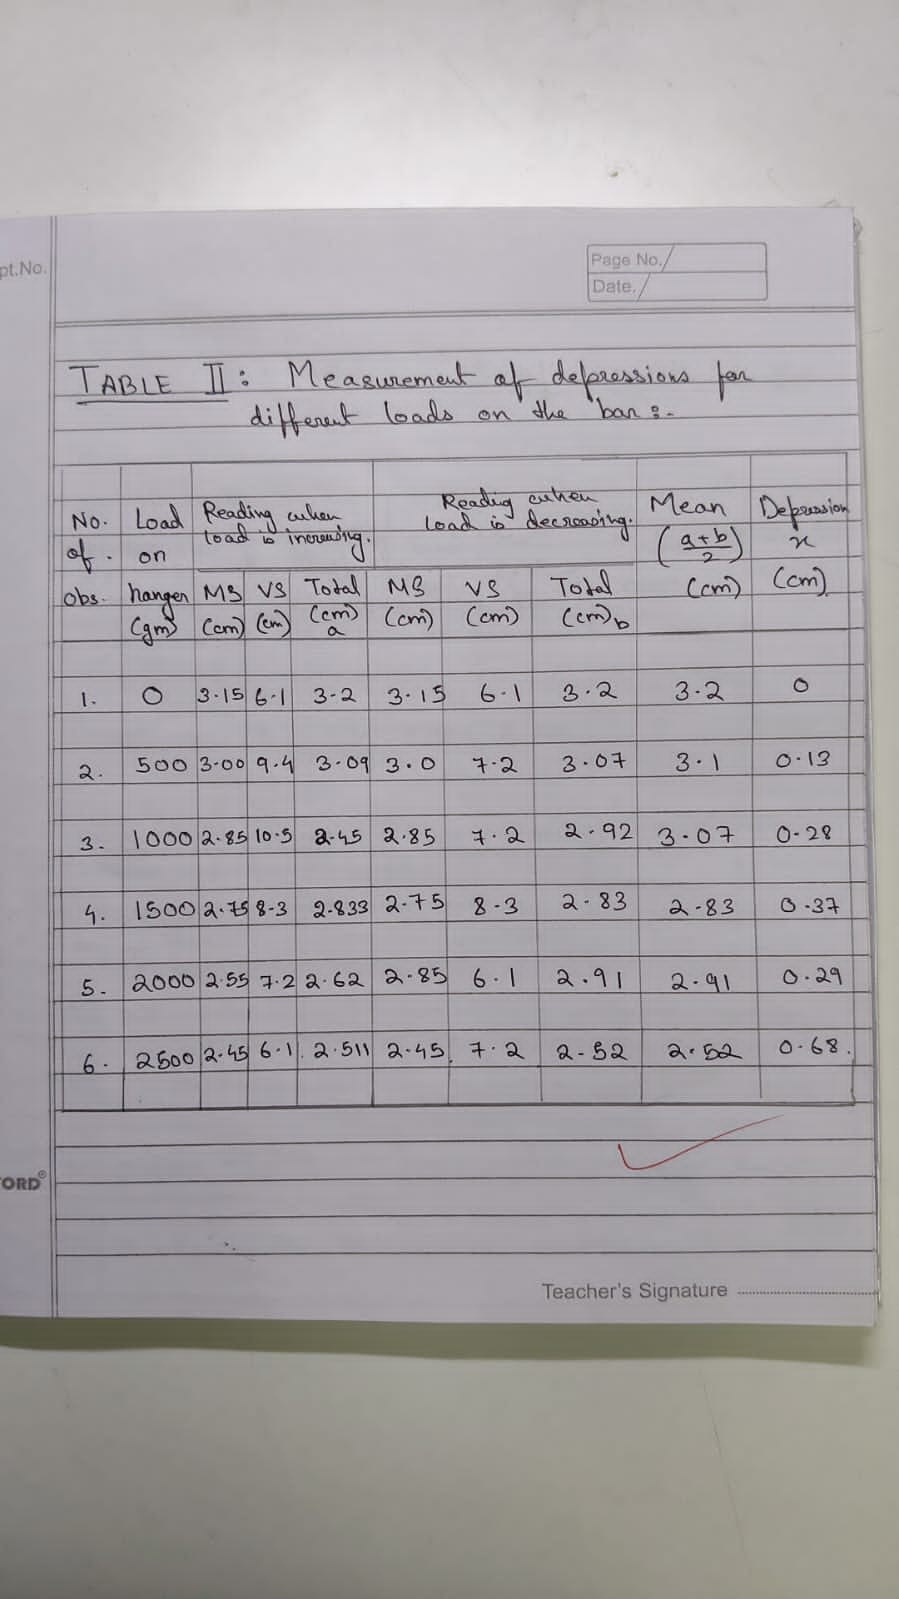 pt.No.
Page No.
Date.
TABLE II: Measurement of depressions for
different loads on the bar:-
No. of Obs. | Load on hanger (gm) | Reading when load is increasing. | Reading when load is decreasing. | Mean (a+b/2) (cm) | Depression x (cm)
MS (cm) | VS (cm) | Total (cm) a | MS (cm) | VS (cm) | Total (cm) b
1. | 0 | 3.15 | 6.1 | 3.2 | 3.15 | 6.1 | 3.2 | 3.2 | 0
2. | 500 | 3.00 | 9.4 | 3.09 | 3.0 | 7.2 | 3.07 | 3.1 | 0.13
3. | 1000 | 2.85 | 10.5 | 2.45 | 2.85 | 7.2 | 2.92 | 3.07 | 0.28
4. | 1500 | 2.75 | 8.3 | 2.833 | 2.75 | 8.3 | 2.83 | 2.83 | 0.37
5. | 2000 | 2.55 | 7.2 | 2.62 | 2.85 | 6.1 | 2.91 | 2.91 | 0.29
6. | 2500 | 2.45 | 6.1 | 2.511 | 2.45 | 7.2 | 2.52 | 2.52 | 0.68
ORD®
Teacher's Signature